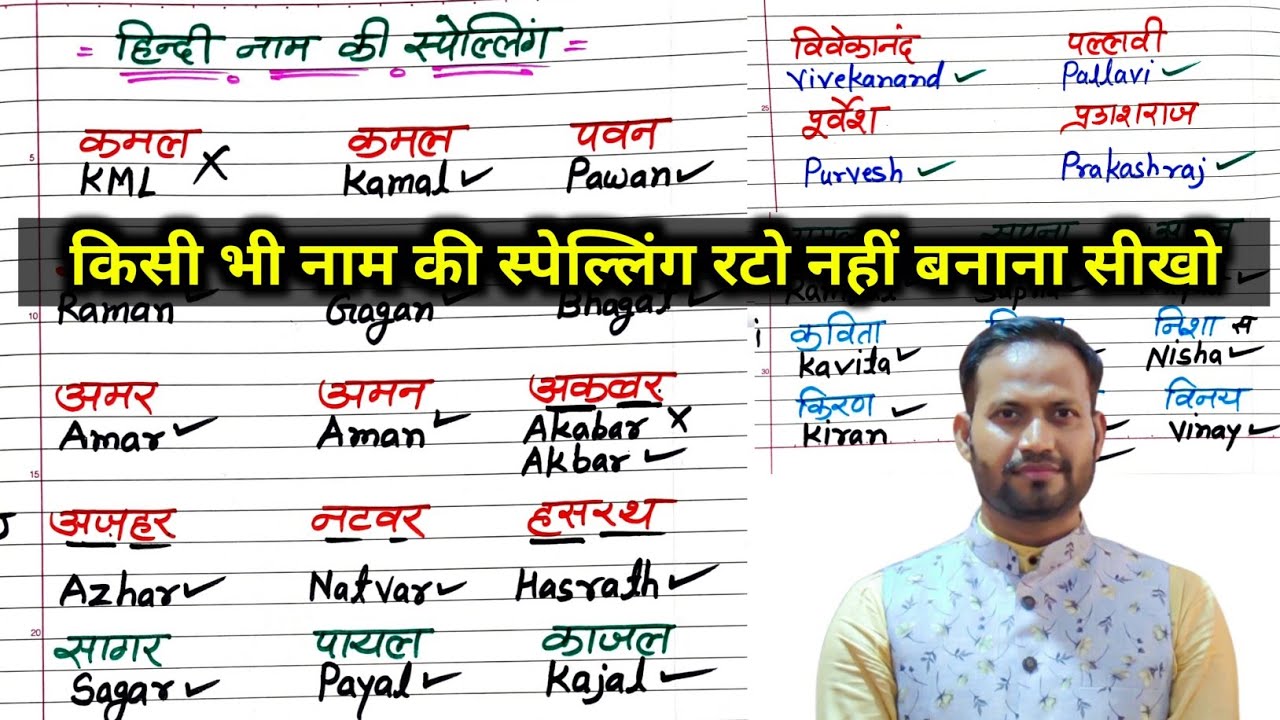 = हिन्दी नाम की स्पेल्लिंग =
कमल कमल पवन
KML X Kamal Pawan
किसी भी नाम की स्पेल्लिंग रटो नहीं बनाना सीखो
Raman Gagan Bhagat
अमर अमन अकबर
Amar Aman Akabar X
Akbar
अज़हर नटवर हसरथ
Azhar Natvar Hasrath
सागर पायल काजल
Sagar Payal Kajal
विवेकानंद पल्लवी
Vivekanand Pallavi
पूर्वेश प्रकाशराज
Purvesh Prakashraj
कविता निशा स
Kavita Nisha
किरण विनय
Kiran Vinay
5
10
15
20
25
30
i